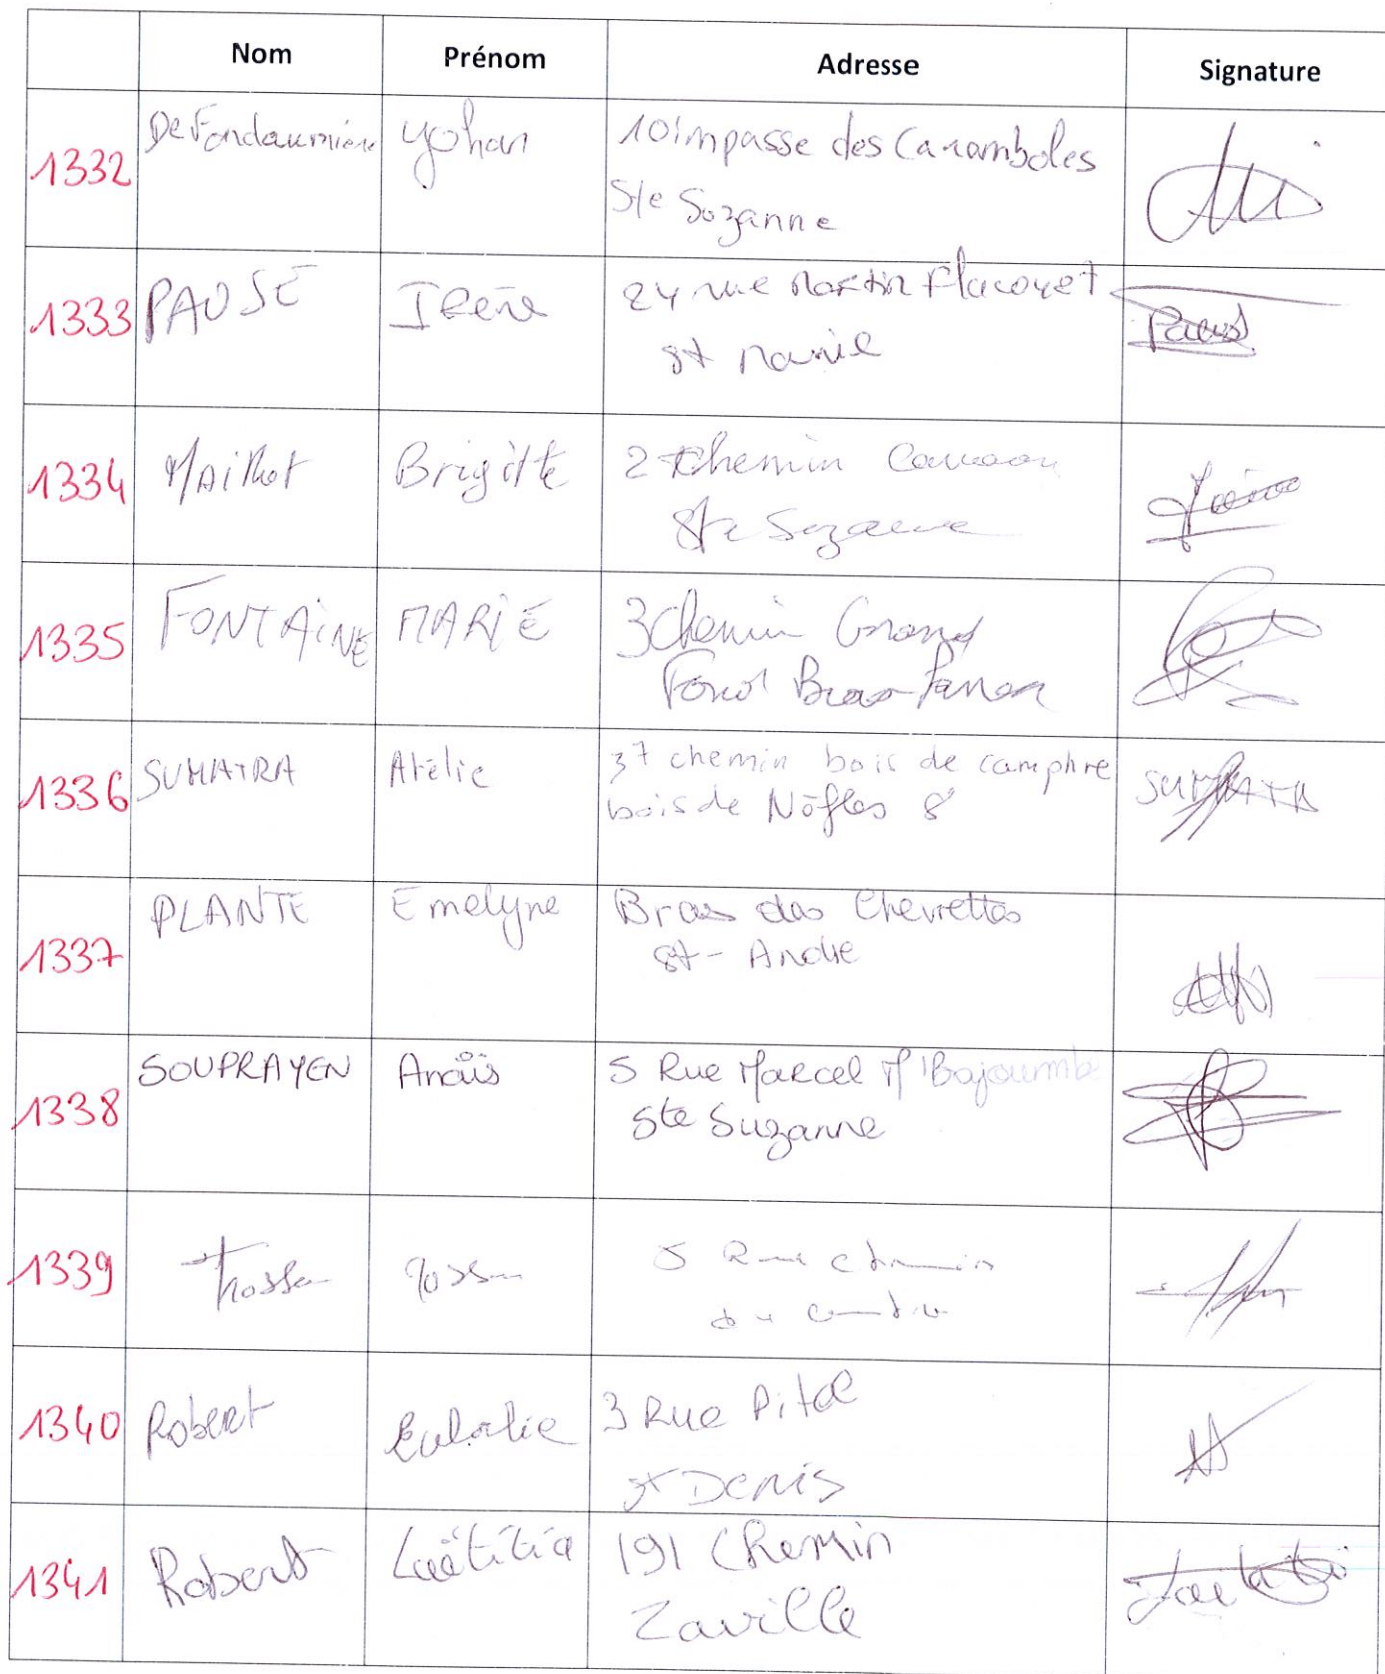 Nom Prénom Adresse Signature
1332 De Fondaumière Yohan 10 impasse des Caramboles
Ste Sozanne
1333 PAUSE Irène 24 rue Martin Flacouet
St Marie
1334 Maillot Brigitte 2 Chemin
Ste Suzanne
1335 FONTAINE MARIE 3 Chemin Grand
Fond Bras Panon
1336 SUMATRA Atélie 37 chemin bois de camphre
bois de Nèfles
1337 PLANTE Emelyne Bras des Chevrettes
St - André
1338 SOUPRAYEN Anaïs 5 Rue Marcel M'Bajoumb
Ste Suzanne
1339 5 Rue chemin
du centre
1340 Robert Eulalie 3 Rue Pitel
St Denis
1341 Robert Laëtitia 191 Chemin
Zaville